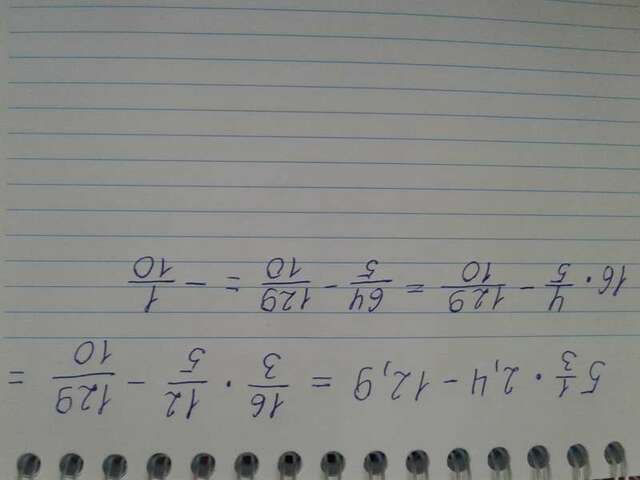 5 1/3 · 2,4 - 12,9 = 16/3 · 12/5 - 129/10 =
16 · 4/5 - 129/10 = 64/5 - 129/10 = - 1/10